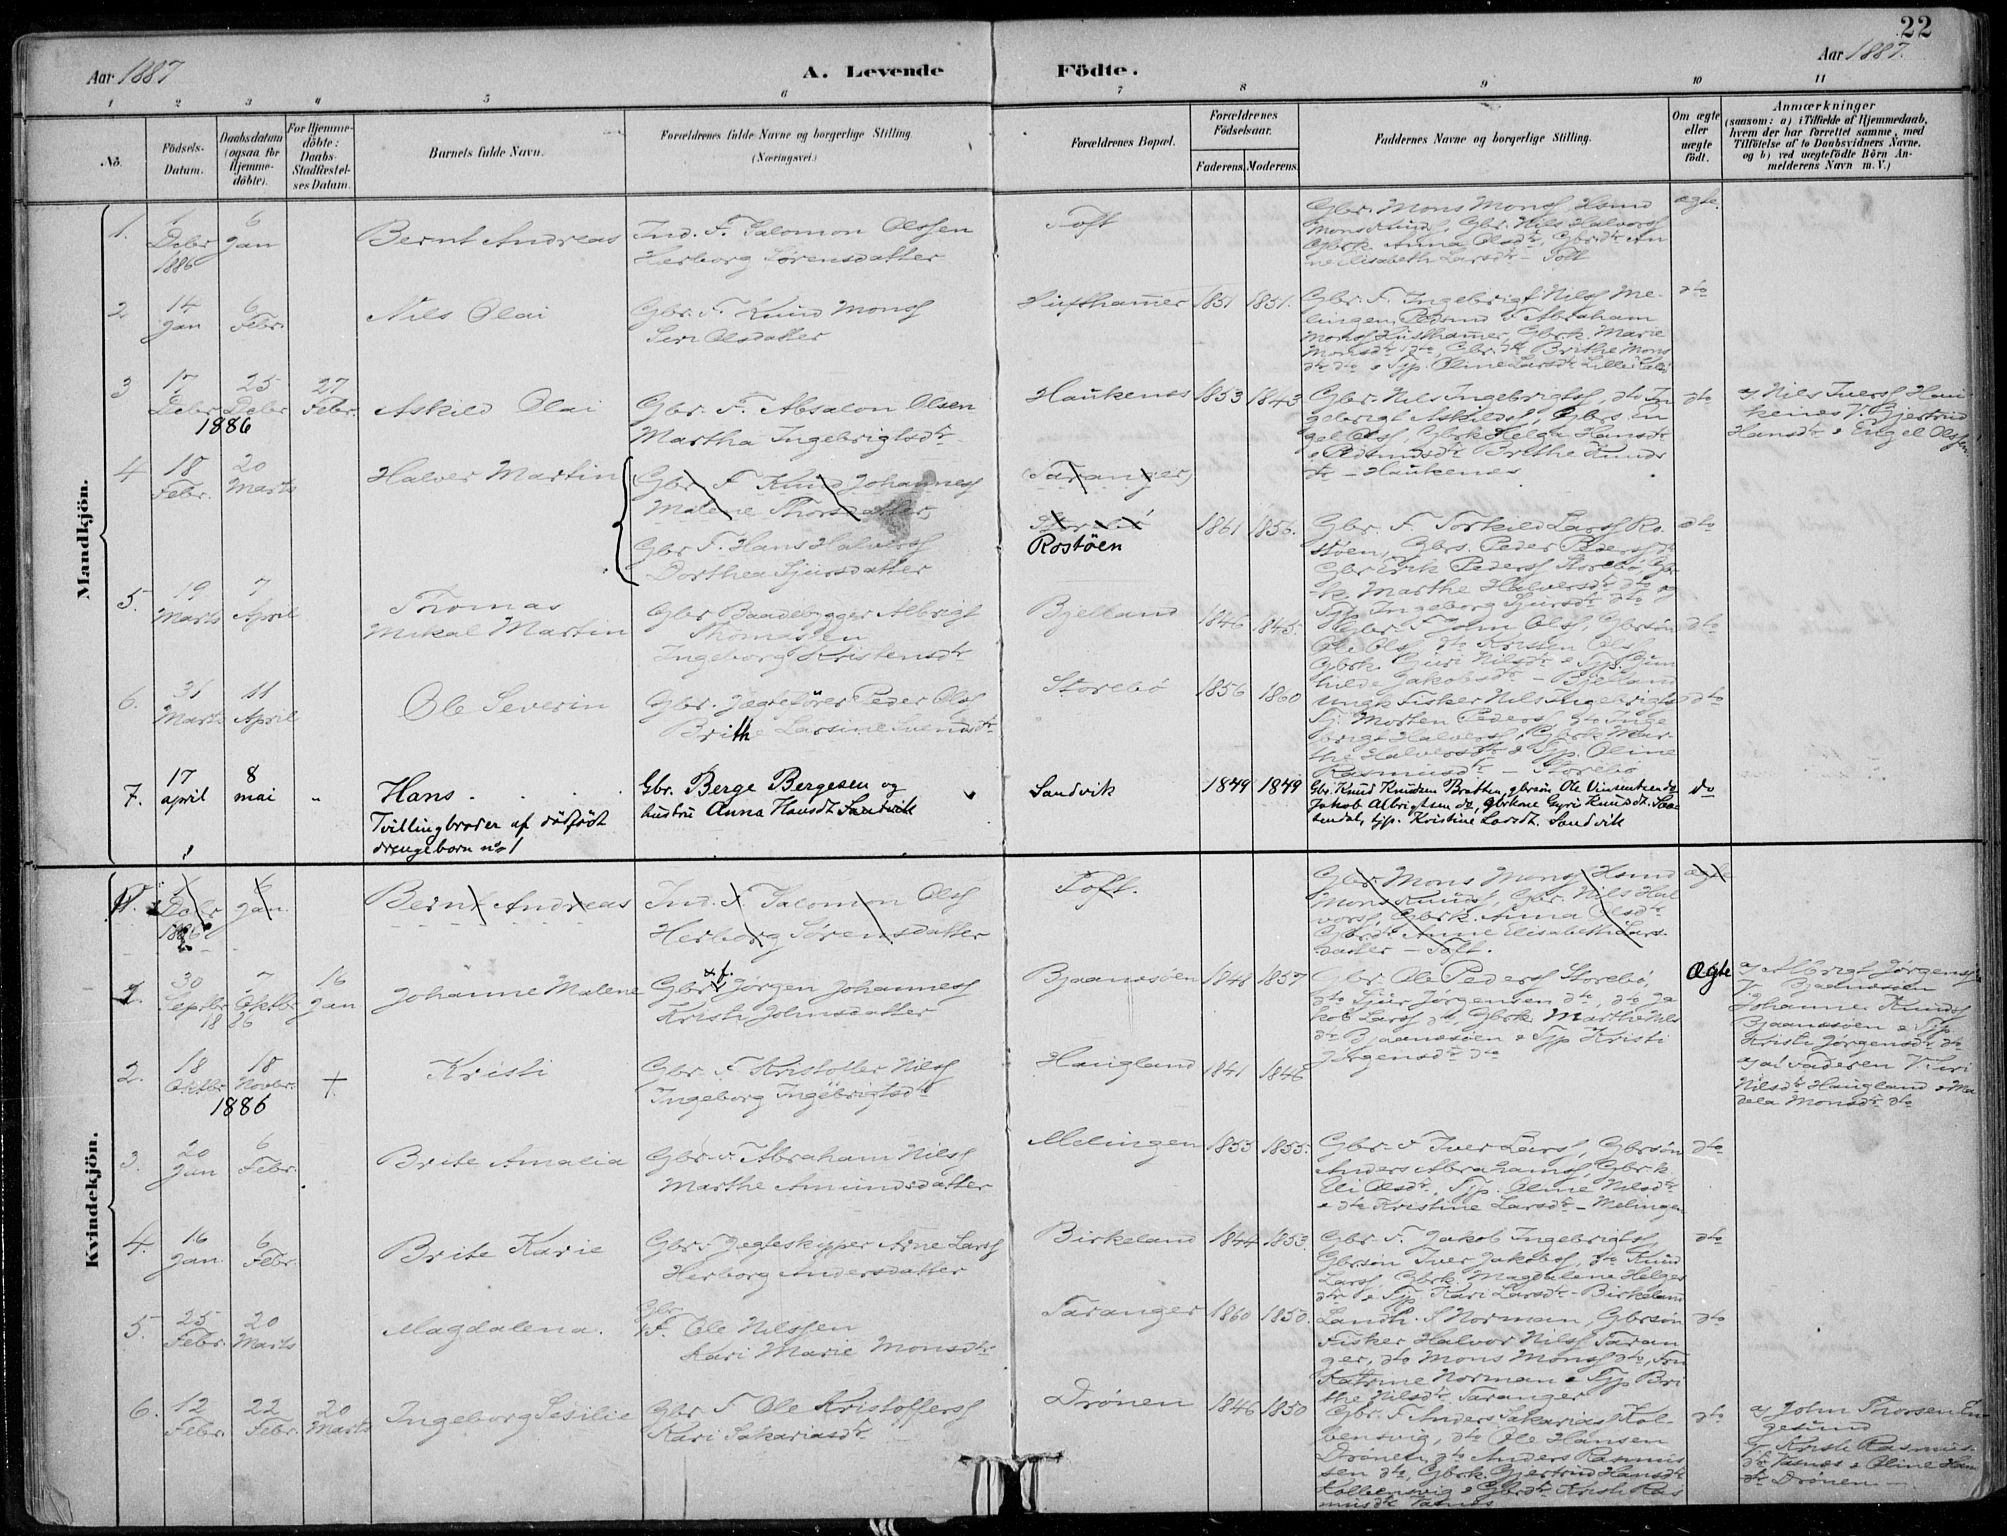 22
Aar 1887
A. Levende Födte.
Aar 1887.
1 2 3 4 5 6 7 8 9 10 11
No.
Födsels-Datum.
Daabsdatum (ogsaa for Hjemme-döbte).
For Hjemme-döbte: Daabs-Stadfæstel-ses Datum.
Barnets fulde Navn.
Forældrenes fulde Navne og borgerlige Stilling. (Næringsvei.)
Forældrenes Bopæl.
Forældrenes Födselsaar.
Faderens. Moderens.
Faddernes Navne og borgerlige Stilling.
Om ægte eller uægte födt.
Anmærkninger
(saasom: a) i Tilfælde af Hjemmedaab,
hvem der har forrettet samme, med
Tilföielse af to Daabsvidners Navne,
og b) ved uægtefödte Börn An-
melderens Navn m. V.)
Mandkjön.
1. 1 Debr 1886 6 Jan Bernt Andreas
Ind. F. Salomon Olssen
Herborg Sörensdatter
Toft
Gbr. Mons Monss Hsmd
Mons Knuds, Gbr. Nils Halvorss
Gbrk. Anna Olsdtr, Gbr.dtr An
ne Elisabeth Larsdtr - Toft
ægte.
2 14 Jan 6 Febr. Nils Olai
Gbr. F. Knud Monss
Siri Olsdatter
Hufthamer 1851 1851.
Gbr. F. Ingebrigt Nilss Me-
lingen, F Abraham
Monss Hufthamer, Gbrk. Marie
Monsdtr dto, Gbr. dtr Brithe Mons
dtr dto & Tjp. Oline Larsdtr
dto
3 17 Debr 25 Debr 1886 27 Febr. Askild Olai
Gbr. F. Absalon Olsen
Martha Ingebrigtsdtr
Haukenes 1853 1843
Gbr. Nils Ingebrigtss, dto In
gebrigt Askildss, Gbrs. En
gel Olss, Gbrk Helga Hansdtr
& Brithe Knuds
dtr - Haukenes.
dto
a, Nils Iverss Hau
kenes, V. Gjertrud
Hansdtr & Engel Olssen
4 18 Febr. 20 Marts Halver Martin
Gbr F Knud Johanness
Malene Thorsdatter
Gbr F. Hans Halverss
Dorthea Sjursdatter
Taranger
Storebö
Rostöen 1861 1856.
Gbr. F. Torkild Larss Ro-
stöen, Gbrs. Peder Pederss dto
Gbr Erik Pederss Storebö, Gbr
k. Marthe Halversdtr dto og
Tjp Ingeborg Sjursdtr dto
dto
5. 19 Marts 7 April Thomas
Mikal Martin
Gbr Baadebygger Albrigt
Thomassen
Ingeborg Kristensdtr
Bjelland 1846 1845.
Gbr. F John Olss, Gbrsön
Ole Olss, dto Kristen Olss
Gbrk. Guri Nilsdtr & Tjp. Gun
hilde Jakobsdtr - Bjelland
dto
6. 31 Marts 11 April Ole Severin
Gbr. Jægtefører Peder Olss
Brithe Larsine Svendsdtr
Storebö 1856 1860
Ungk Fisker Nils Ingebrigts
Tj. Morten Pederss, dto Inge
brigt Halverss, Gbrk Mar
the Halversdtr & Tjp. Oline
Rasmusdtr - Storebö
dto
7. 17 april 8 mai " Hans.
Tvillingbroder af dödfödt
drengebarn no 1
Gbr. Berge Bergesen og
hustru Anna Hansdt. Sandvik
Sandvik 1849 1849
Gbr. Knud Knudsen Bratten, gbrsön Ole Vinsentsen do
Jakob Albrigtsen do, gbrkone Gyri Knudsdt.
tjp. Kristine Larsdt. Sandvik
do
Kvindekjön.
1. Debr 1886 6 Jan. Bernt Andreas
Ind. F. Salomon Olss
Herborg Sørensdatter
Toft.
Gbr. Mons Monss, Hsmd
Mons Knuds, Gbr. Nils Hal
vorss, Gbrk. Anna Olsdtr.
Gbrdtr Anne Elisabeth Lars
datter - Toft.
ægte
1. 30 Septbr 7 Oktbr 1886 16 Jan Johanne Malene
Gbr. f. Jörgen Johanness
Kristi Johnsdatter
Bjaanesöen 1848 1857
Gbr. Ole Pederss Storebö,
dto Sjur Jørgensen dto, dto Ja
kob Larss dto, Gbrk Marthe Nils
dtr Bjaanesöen & Tjp Kristi
Jørgensdtr dto
Ægte
a, Albrigt Jørgens
V Bjaanesöen
Johannes Knuds
Bjaanesöen & Tjp
Kristi Jørgensdtr dto
2. 18 Oktbr. 18 Novbr. 1886 + Kristi
Gbr. F Kristoffer Nilss
Ingeborg Ingebrigtsdtr
Haugland 1841 1846
a, af Faderen V Siri
Nilsdtr Haugland & Ma
dela Monsdtr dto
3. 20 Jan 6 Febr. Brite Amalia
Gbr. F. Abraham Nilss
Marthe Amundsdatter
Melingen 1853 1855.
Gbr. F Iver Larss, Gbrsön
Anders Abrahamss, Gbrk.
Eli Olsdtr, Tjp. Oline Nilsdtr
& dto Kristine Larsdtr - Melingen
dto
4. 16 Jan 6 Febr. Brite Karie
Gbr. Jegteskipper Arne Larss
Herborg Andersdatter
Birkeland 1844 1853.
Gbr. F. Jakob Ingebrigtss
Gbrsön Iver Jakobss, dto Knud
Larss, Gbrk. Magdalene Helges
dtr & Tjp. Kari Larsdtr - Birkeland
dto
5. 25 Febr. 20 Marts Magdalena.
Gbr.
F. Ole Nilssen
Kari Marie Monsdtr
Taranger 1860 1850.
Landh. S Norman, Gbrsön
Fisker Halvor Nilss Taran
ger, dto Mons Monss dto, Fru
Katrine Norman & Tjp Bri
the Nilsdtr Taranger
dto
6. 12 Febr. 22 Febr. 20 Marts Ingeborg Sesilie
Gbr F Ole Kristofferss
Kari Sakariasdtr
Drönen 1846 1850
Gbr. F. Anders Sakarias Kol-
bensvig, dto Ole Hansen
Drönen, dto Anders Rasmus
sen dto, Gbrk. Gjertrud Hansdtr
Kolbensvig & Gbrdtr Kristi Ras
musdtr Vasnes
dto
a, John Thorsen En
gesund
V. Kristi Rasmus
dtr Vasnes & Oline Han
dtr Drönen